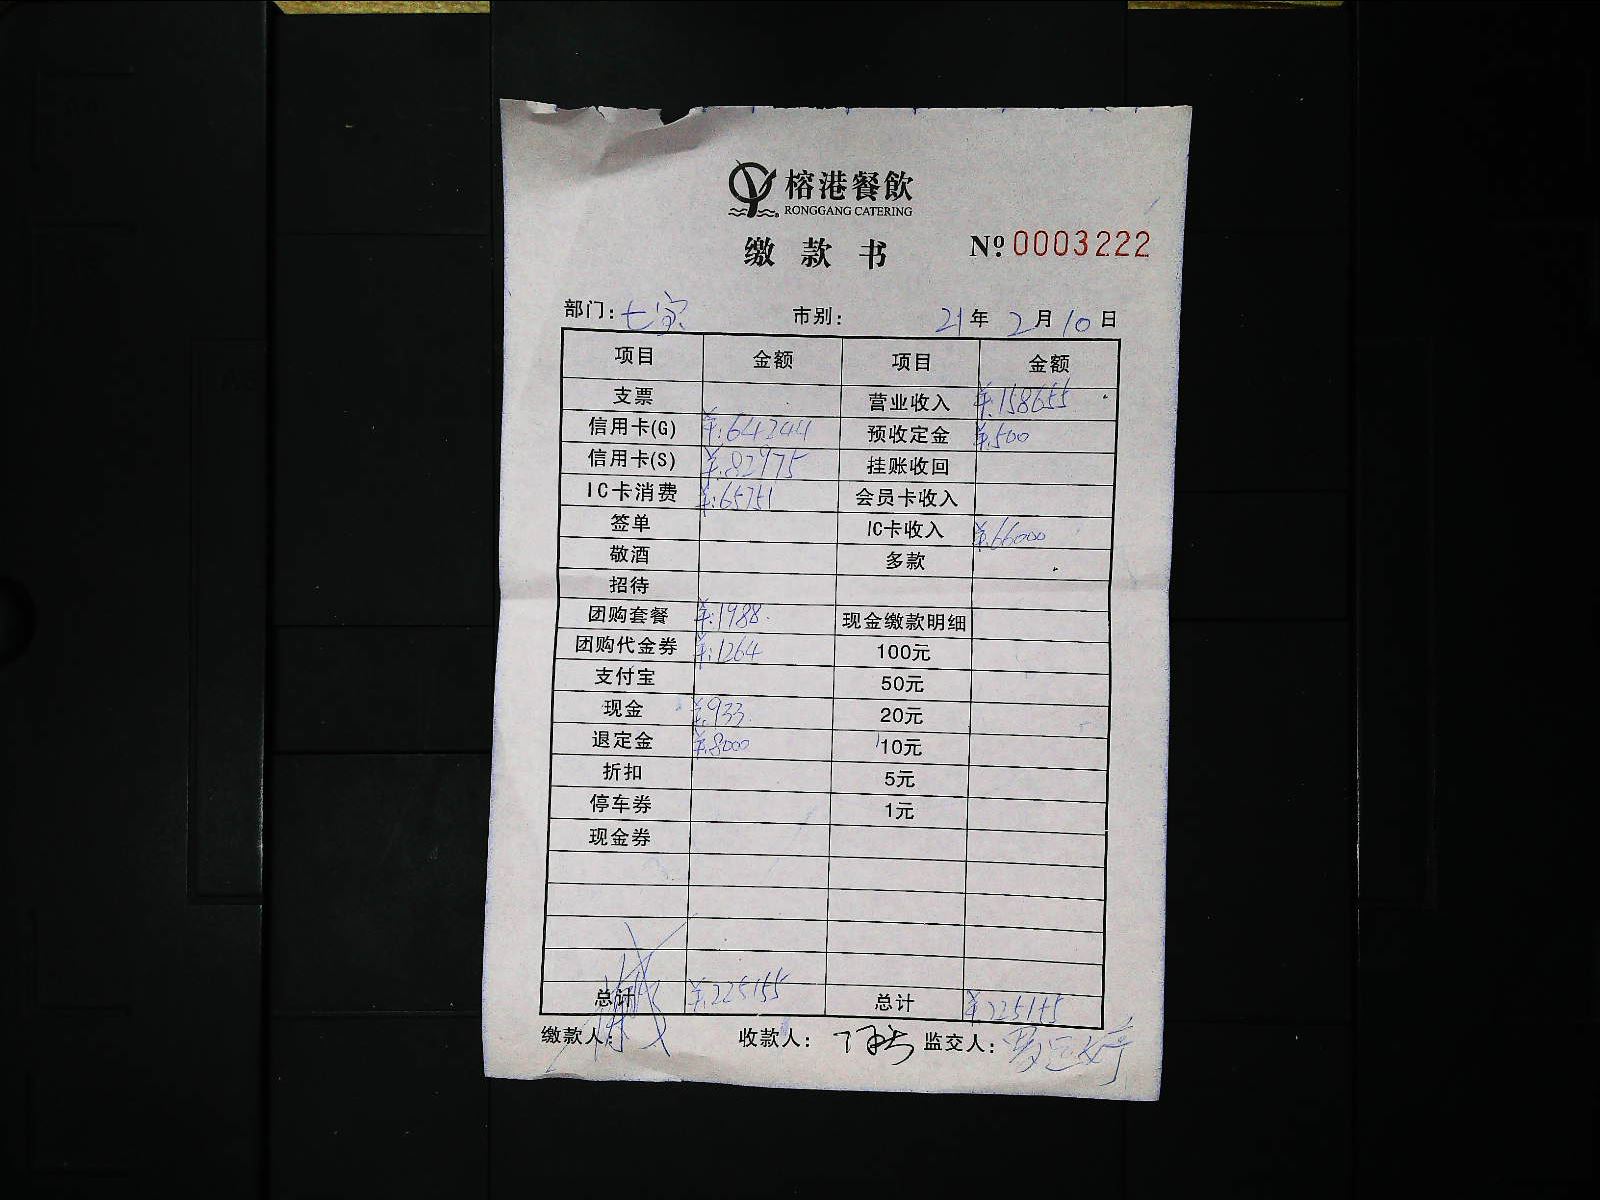 榕港餐飲
RONGGANG CATERING
缴款书 Nº:0003222
部门: 市别: 21年2月10日
项目 金额 项目 金额
支票 营业收入 ¥:158655
信用卡(G) ¥:64244 预收定金 ¥:500
信用卡(S) ¥:82975 挂账收回
IC卡消费 ¥:65751 会员卡收入
签单 IC卡收入 ¥:66000
敬酒 多款
招待
团购套餐 ¥:1988 现金缴款明细
团购代金券 ¥:1264 100元
支付宝 50元
现金 ¥:933 20元
退定金 ¥:8000 10元
折扣 5元
停车券 1元
现金券
总计 ¥:225155 总计 ¥:225155
缴款人: 收款人: 监交人: